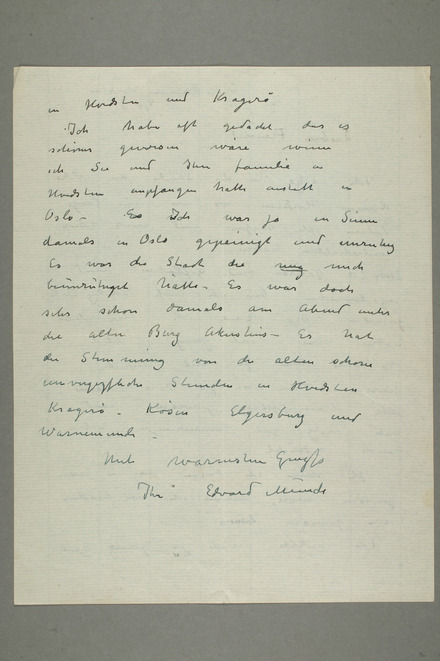 in Hvidsten und Kragerö
Ich habe oft gedacht das es
schöner gewesen wäre wenn
ich Sie und Ihre Familie in
Hvidsten empfangen hätte anstatt in
Oslo – Es Ich war ja im Sinne
damals in Oslo gepeinigt und unruhig
Es war die Stadt die mich
beunruhigt hatte – Es war doch
sehr schön damals am Abend unter
die alte Burg Akershus – Es hat
die Stimmung von die alten schöne
unvergessliche Stunden in Hvidsten
Kragerö – Kösen Elgersburg und
Warnemünde –
Mit wärmsten Gruss
Ihr Edvard Munch